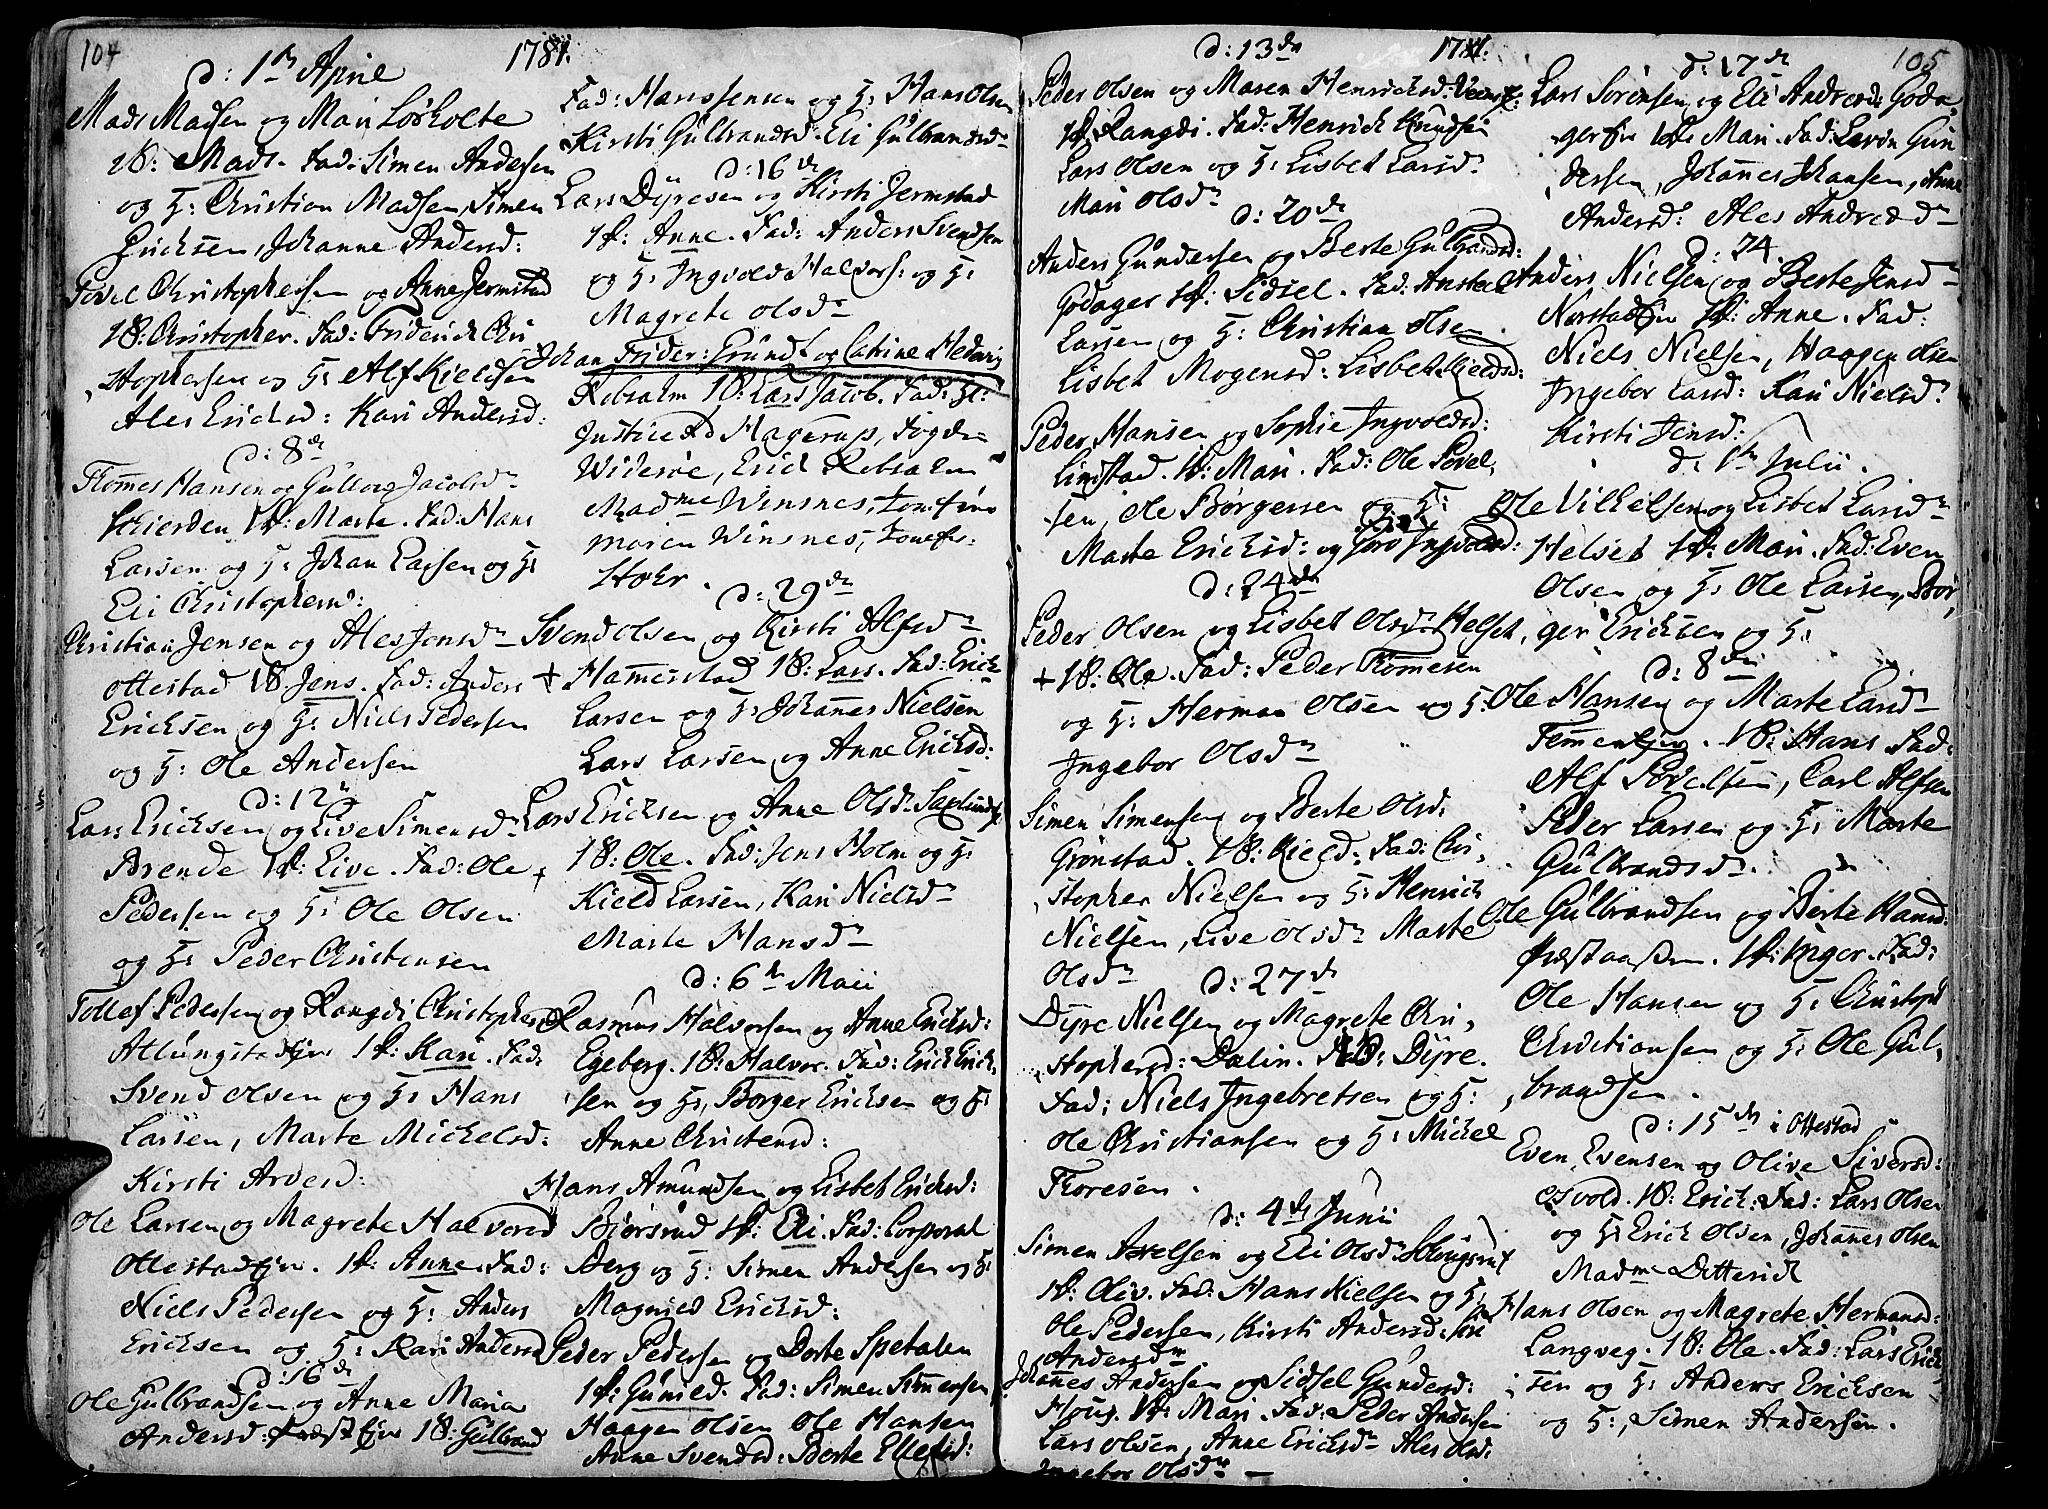 104
1781.
d: 1ste Aprill
Mads Madsen og Mari Lösholte
1 B: Mads. Fad: Simen Andersen
og H: Christian Madsen, Simen
Ericksen, Johanne Andersd:
Povel Christophersen og Anne Jermstad
1 B: Christopher. Fad: Friderich Chri
stophersen og H: Alf Kieldsen
Ales Ericksd: Kari Andersd:
d: 8de
Tommes Hansen og Gullou Jacobsdr
1 P: Marte. Fad: Hans
Larsen og H: Johan Larsen og H:
Eli Christophersd:
Christian Jensen og Ales Jensdr
Ottestad 1 B Jens. Fad: Anders
Ericksen og H: Niels Pedersen
og H: Ole Andersen
d: 12te
Lars Ericksen og Live Simensdr
Brende 1 P: Live. Fad: Ole
Pedersen og H: Ole Olsen
og H: Peder Christensen
Tollef Pedersen og Rangdi Christophersd
Allungstad Eje 1 P: Kari. Fad:
Svend Olsen og H: Hans
Larsen, Marte Mickelsd:
Kirsti Arvesd:
Ole Larsen og Magrete Halvorsd
Ottestad Eje. 1 P: Anne. Fad:
Niels Pedersen og H: Anders
Ericksen og H: Kari Andersd
d: 16de
Ole Gulbrandsen og Anne Maria
Andersd: Præst Eje 1 B: Gulbrand
Fad: Hans Jensen og H: Hans Olsen
Kirsti Gulbrandsd: Eli Gulbrandsdr
d: 16de
Lars Dyresen og Kirsti Jermstad
1 P: Anne. Fad: Anders Svendsen
og H: Ingvold Halvors: og H:
Magrete Olsdr
Johan Frider: Gründt og Catrine Hedevig
Rebsalm 1 B: Lars Jacob. Fad: Hr:
Justice Rd Hagerup, Fogden
Wideröe, Erick Rebsalm
Madme Winsnes, Jomfrue
Maren Winsnes, Jomfr:
d: 29de
Svend Olsen og Kirsti Alfsdr
+ Hammerstad 1 B: Lars. Fad: Erick
Larsen og H: Johannes Nielsen
Lars Larsen og Anne Ericksd:
Lars Ericksen og Anne Olsdr Saxlund
+ 1 B: Ole. Fad: Jens Holm og H:
Kield Larsen, Kari Nielsdr
Marte Hansdr
d: 6te Maii
Rasmus Halvorsen og Anne Ericksd:
Egeberg. 1 B: Halvor. Fad: Erick Erick
sen og H:, Borger Ericksen og H:
Anne Christensd:
Hans Amundsen og Lisbet Ericksd:
Biörsrud 1 P: Eli. Fad: Corporal
Berg og H: Simen Andersen og H:
Magnild Ericksd:
Peder Pedersen og Dorte Spetalen
1 P: Gunild. Fad: Simen Simensen
Haagen Olsen Ole Hansen
Anne Svendsd: Berte Ellefsd:
105
1781.
d: 13de
Peder Olsen og Maren Henricksd:
1 P: Rangdi. Fad: Henrick Knudsen
Lars Olsen og H: Lisbet Larsdr
Mari Olsdr
d: 20de
Anders Gundersen og Berte Gulbrandsd:
Godager 1 P: Sidsel. Fad:
Larsen og H: Christian Olsen
Lisbet Mogensd: Lisbet Kieldsd:
Peder Hansen og Sophie Ingvoldsd:
Limstad. 1 P: Mari. Fad: Ole Povel
sen, Ole Börgersen og H:
Marte Ericksd: og Goro Ingvoldsd:
d: 24de
Peder Olsen og Lisbet Olsdr Helset
+ 1 B: Ole. Fad: Peder Tommesen
og H: Herman Olsen og H:
Ingebor Olsdr
Simen Simensen og Berte Olsd:
Grönstad. 1 B: Kield. Fad: Chri
stopher Nielsen og H: Henrich
Nielsen, Live Olsdr Marte
Olsdr
d: 27de
Dyre Nielsen og Magrete Chri
stophersd: Dalin. 1 B: Dyre.
Fad: Niels Ingebretsen og H:
Ole Christiansen og H: Mickel
Toresen.
d: 4de Junii
Simen Axelsen og Eli Olsdr
1 P: Oliv. Fad: Hans Nielsen og H:
Ole Pedersen, Kirsti Andersd:
Andersdr
Johannes Andersen og Sidsel Gundersd:
Houg. 1 P: Mari. Fad: Peder Andersen
Lars Olsen, Anne Ericksdr Ales Olsd:
Ingebor Olsdr
d: 17de
Lars Sörensen og Eli Andersd: Goda
ger Eje 1 P: Mari. Fad: Gun
dersen, Johannes Johansen, Anne
Andersd: Ales Andersdr
d: 24.
Anders Nielsen og Berte Jensdr
Norstad Eje 1 P: Anne. Fad:
Niels Nielsen, Haagen Olsen
Ingebor Larsd: Kari Nielsdr
Kirsti Jensd:
d: 1ste Julii.
Ole Vilhelsen og Lisbet Larsdr
Helset 1 P: Mari. Fad: Even
Olsen og H: Ole Larsen, Bör
ger Ericksen og H:
d: 8de
Ole Hansen og Marte Larsdr
1 B: Hans Fad:
Alf Povelsen, Carl Alfsen
Peder Larsen og H: Marte
Gulbrandsdr
Ole Gulbrandsen og Berte Hansd:
1 P: Inger. Fad:
Ole Hansen og H: Christoph
Christiansen og H: Ole Gul
brandsen.
d: 15de i Ottestad
Even Evensen og Olive Siversd:
Osvold. 1 B: Erick. Fad: Lars Olsen
og H: Erick Olsen, Johannes Olsen
Madme Ditterich
Hans Olsen og Magrete Hermansd:
Langveg. 1 B: Ole. Fad: Lars Erick
sen og H: Anders Ericksen
og H:, Simen Andersen.